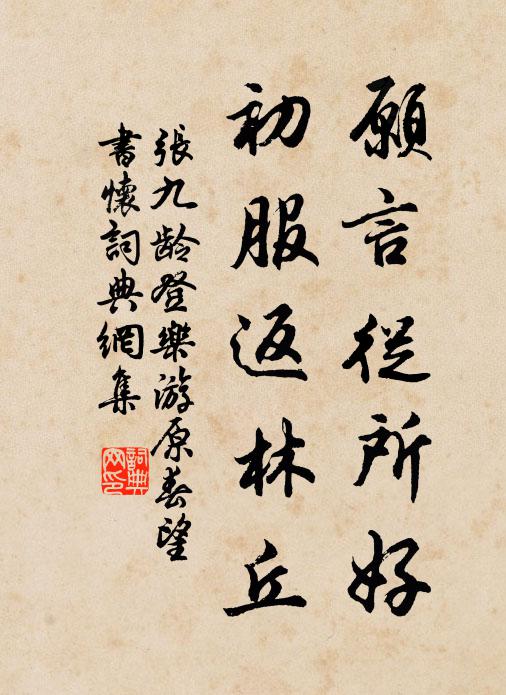 願言從所好
初服返林丘
張九齡登樂游原春望
書懷詞典網集
詞典
网印